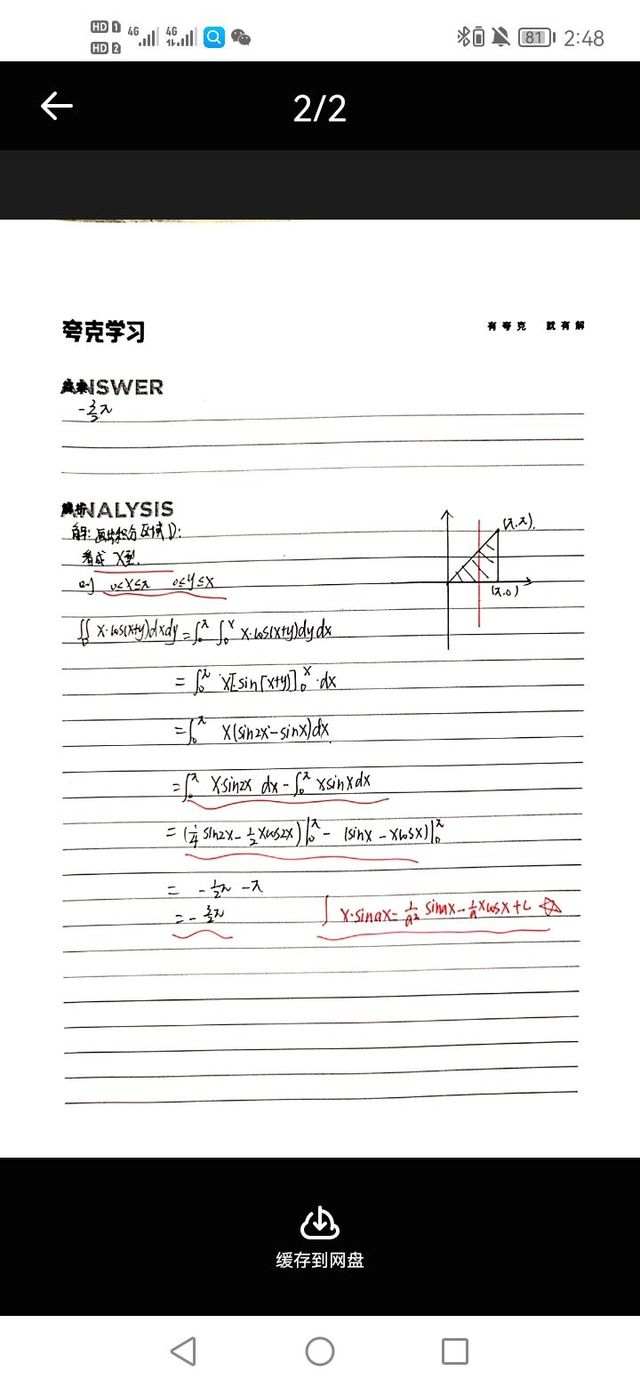 HD 1 4G 4G 81 2:48
HD 2
2/2
夸克学习
有夸克 就有解
ANSWER
-3/2π
ANALYSIS
解: 画出积分区域D:
看成 X型.
0<X≤π 0≤y≤x
(π,π).
(π,0)
∬_D x·cos(x+y)dxdy=∫_0^π ∫_0^x x·cos(x+y)dydx
= ∫_0^π x[sin(x+y)]_0^x ·dx
=∫_0^π x(sin2x-sinx)dx
=∫_0^π x·sin2x dx-∫_0^π xsinxdx
= (1/4 sin2x-1/2 xcos2x)|_0^π - (sinx-xcosx)|_0^π
= -1/2π -π
=-3/2π
∫ x·sinax= 1/a² sinax-1/a xcosx+C ☆
缓存到网盘